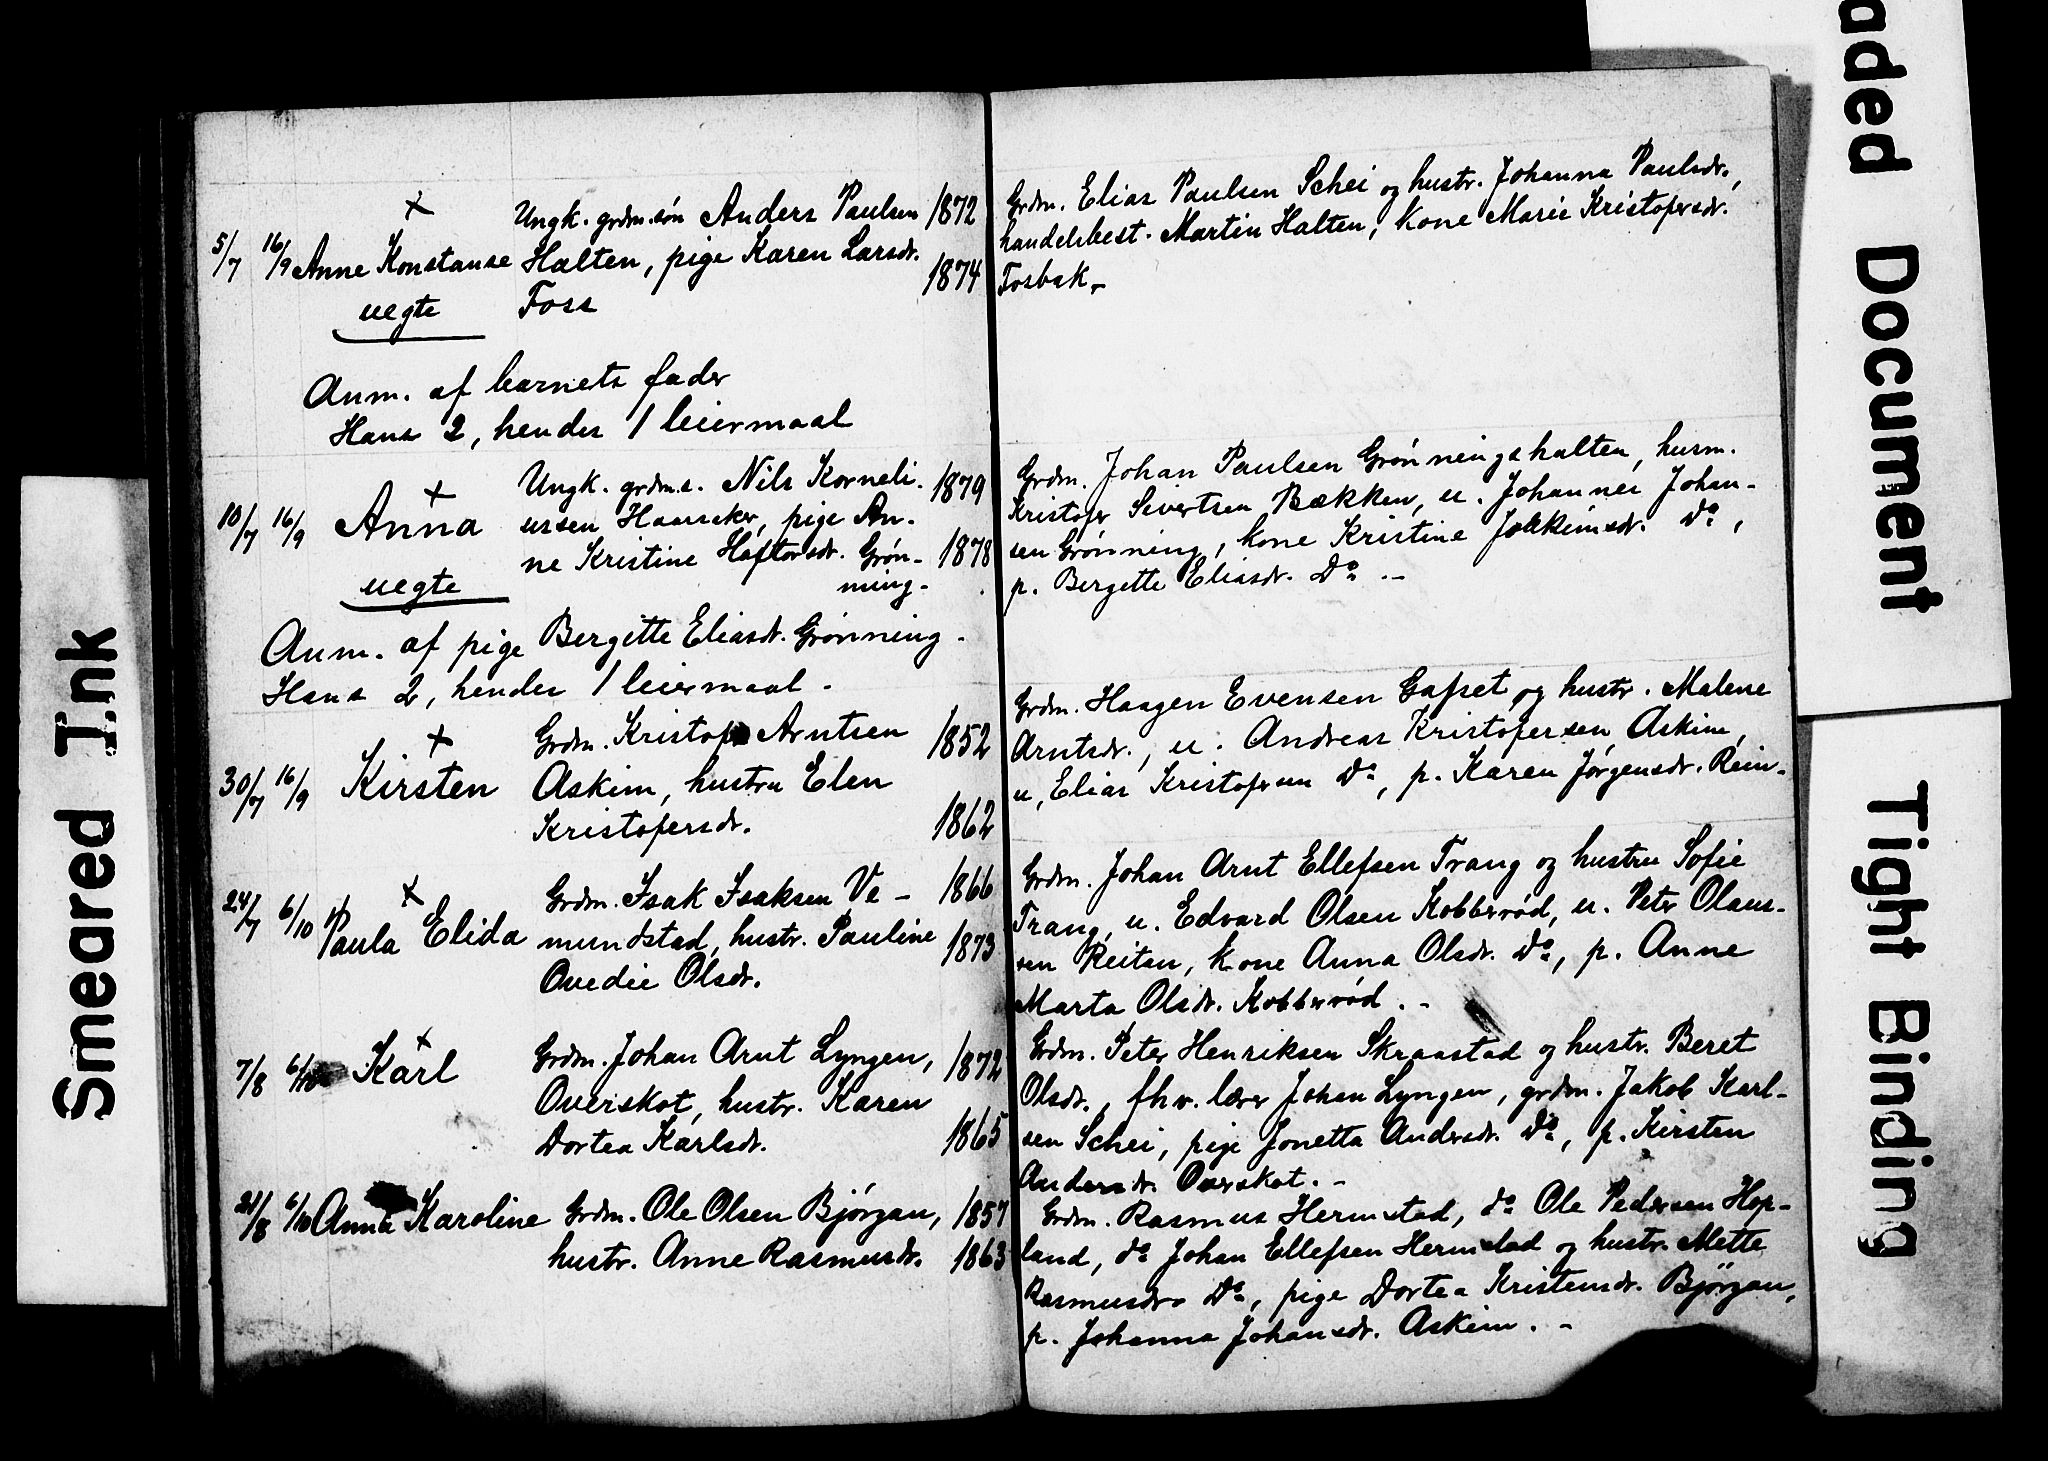 +
Ungk. grdm.søn Anders Paulsen 1872
5/7 16/9 Anne Konstanse Halten, pige Karen Larsdr. 1874
uegte Foss
Anm. af barnets fader
Hans 2, hendes 1 leiermaal
+
Ungk. grdm.s. Nils Korneli- 1879
10/7 16/9 Anna ussen Haarsaker, pige An-
ne Kristine Haftorsdr. Grøn- 1878
uegte ning.
Anm. af pige Bergitte Eliasdr. Grønning.
Hans 2, hendes 1 leiermaal.
+
Grdm. Kristofer Arntsen 1852
30/7 16/9 Kirsten Askim, hustru Elen
Kristofersdr. 1862
+
Grdm. Isak Isaksen Ve- 1866
24/7 6/10 Paula Elida mundstad, hustr. Pauline 1873
Ovedie Olsdr.
+
7/8 6/10 Karl Grdm. Johan Arnt Lyngen, 1872
Overskot, hustr. Karen
Dortea Karlsdr. 1865
21/8 6/10 Anna Karoline Grdm. Ole Olsen Bjørgan, 1857
hustr. Anne Rasmusdr. 1863
Grdm. Elias Paulsen Schei og hustr. Johanna Paulsdr.,
handelsbest. Martin Halten, kone Marie Kristofersdr.
Fosbak.-
Grdm. Johan Paulsen Grønningshalten, husm.
Kristofer Sivertsen Bækken, u. Johannes Johan-
sen Grønning, kone Kristine Joakimsdr. Do,
p. Bergette Eliasdr. Do.-
Grdm. Haagen Evensen Gafset og hustr. Malene
Arntsdr., u. Andreas Kristofersen Askim,
u, Elias Kristofersen Do, p. Karen Jørgensdr. Rein.
Grdm. Johan Arnt Ellefsen Trang og hustru Sofie
Trang, u. Edvard Olsen Kobberød, u. Peter Olaus-
sen Reitan, kone Anna Olsdr. Do, p. Anne
Marta Olsdr. Kobberød.-
Grdm. Peter Henriksen Skraastad og hustr. Beret
Olsdr., fhv. lærer Johan Lyngen, grdm. Jakob Karl-
sen Schei, pige Jonetta Andersdr. Do, p. Kirsten
Andersdr. Overskot.-
Grdm. Rasmus Hermstad, do Ole Pedersen Hop-
land, do Johan Ellefsen Hermstad og hustr. Mette
Rasmusdr. Do, pige Dortea Kristensdr. Bjørgan,
p. Johanna Johansdr. Askim.-
Smeared Ink
aded Document
Tight Binding